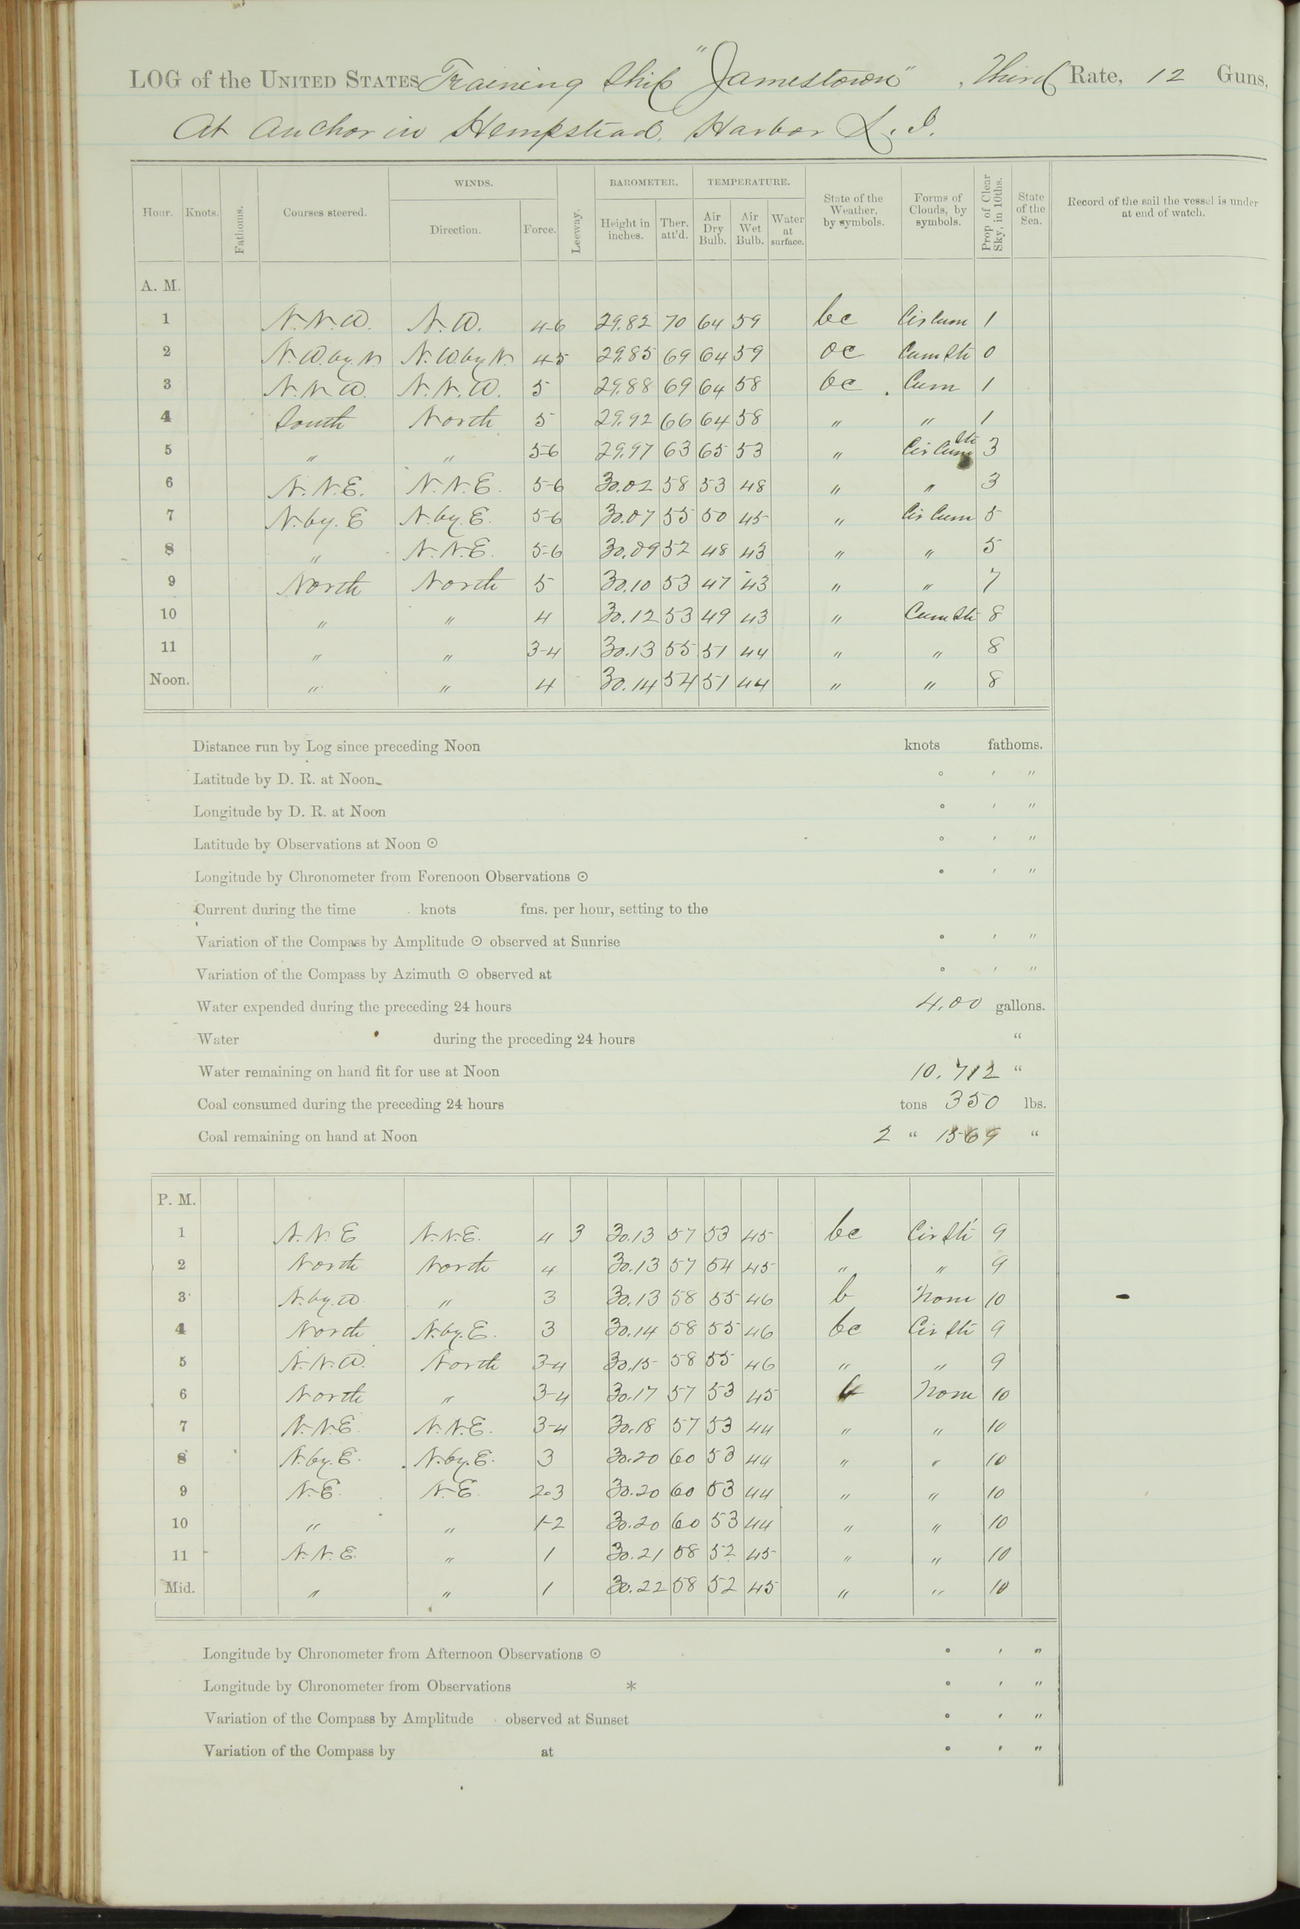 LOG of the UNITED STATES Training Ship "Jamestown", Third Rate, 12 Guns,
At Anchor in Hempstead Harbor L. I.
WINDS. BAROMETER. TEMPERATURE.
Hour. Knots. Fathoms. Courses steered. Direction. Force. Leeway. Height in inches. Ther. att'd. Air Dry Bulb. Air Wet Bulb. Water at surface. State of the Weather, by symbols. Forms of Clouds, by symbols. Prop. of Clear Sky, in 10ths. State of the Sea. Record of the sail the vessel is under at end of watch.
A. M.
1 N.N.W. N.W. 4-6 29.82 70 64 59 bc Cir Cum 1
2 N.W.by.N. N.W.by.N. 4-5 29.85 69 64 59 oc Cum Sti 0
3 N.N.W. N.N.W. 5 29.88 69 64 58 bc Cum 1
4 South North 5 29.92 66 64 58 " " 1
5 " " 5-6 29.97 63 65 53 " Cir Cum Sti 3
6 N.N.E. N.N.E. 5-6 30.02 58 53 48 " " 3
7 N.by.E N.by.E. 5-6 30.07 55 50 45 " Cir Cum 5
8 " N.N.E. 5-6 30.09 52 48 43 " " 5
9 North North 5 30.10 53 47 43 " " 7
10 " " 4 30.12 53 49 43 " Cum Sti 8
11 " " 3-4 30.13 55 51 44 " " 8
Noon. " " 4 30.14 54 51 44 " " 8
Distance run by Log since preceding Noon knots fathoms.
Latitude by D. R. at Noon ° ′ ″
Longitude by D. R. at Noon ° ′ ″
Latitude by Observations at Noon ☉ ° ′ ″
Longitude by Chronometer from Forenoon Observations ☉ ° ′ ″
Current during the time knots fms. per hour, setting to the
Variation of the Compass by Amplitude ☉ observed at Sunrise ° ′ ″
Variation of the Compass by Azimuth ☉ observed at ° ′ ″
Water expended during the preceding 24 hours 4.00 gallons.
Water during the preceding 24 hours "
Water remaining on hand fit for use at Noon 10.712 "
Coal consumed during the preceding 24 hours tons 350 lbs.
Coal remaining on hand at Noon 2 " 1569 "
P. M.
1 N.N.E N.N.E. 4 3 30.13 57 53 45 bc Cir Sti 9
2 North North 4 30.13 57 54 45 " " 9
3 N.by.W " 3 30.13 58 55 46 b None 10
4 North N.by.E. 3 30.14 58 55 46 bc Cir Sti 9
5 N.N.W. North 3-4 30.15 58 55 46 " " 9
6 North " 3-4 30.17 57 53 45 b None 10
7 N.N.E N.N.E. 3-4 30.18 57 53 44 " " 10
8 N.by.E. N.by.E. 3 30.20 60 53 44 " " 10
9 N.E. N.E. 2-3 30.20 60 53 44 " " 10
10 " " 1-2 30.20 60 53 44 " " 10
11 N.N.E. " 1 30.21 58 52 45 " " 10
Mid. " " 1 30.22 58 52 45 " " 10
Longitude by Chronometer from Afternoon Observations ☉ ° ′ ″
Longitude by Chronometer from Observations * ° ′ ″
Variation of the Compass by Amplitude observed at Sunset ° ′ ″
Variation of the Compass by at ° ′ ″